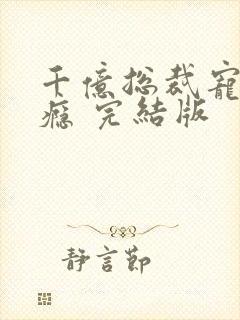 千億總裁寵
癮 完結版
靜言節